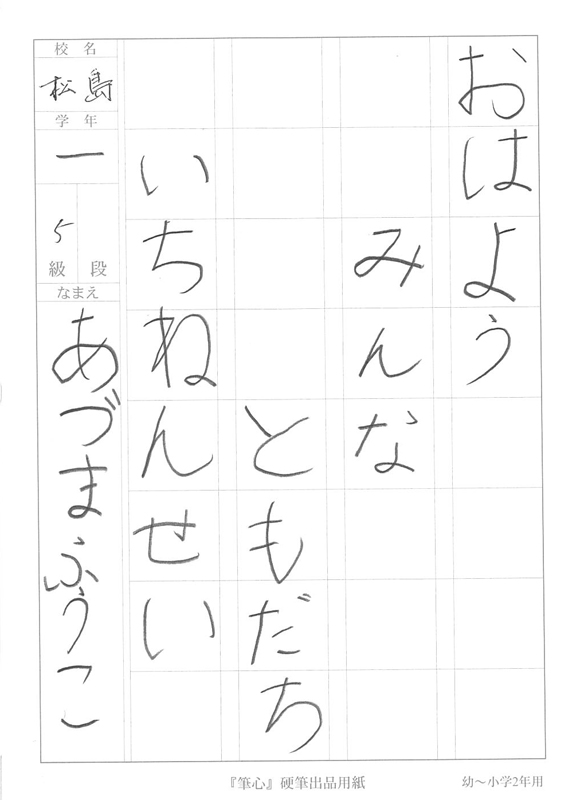 おはよう
みんな
ともだち
いちねんせい
校名
松島
学年
一
5
級 段
なまえ
あづまふうこ
『筆心』硬筆出品用紙
幼～小学2年用